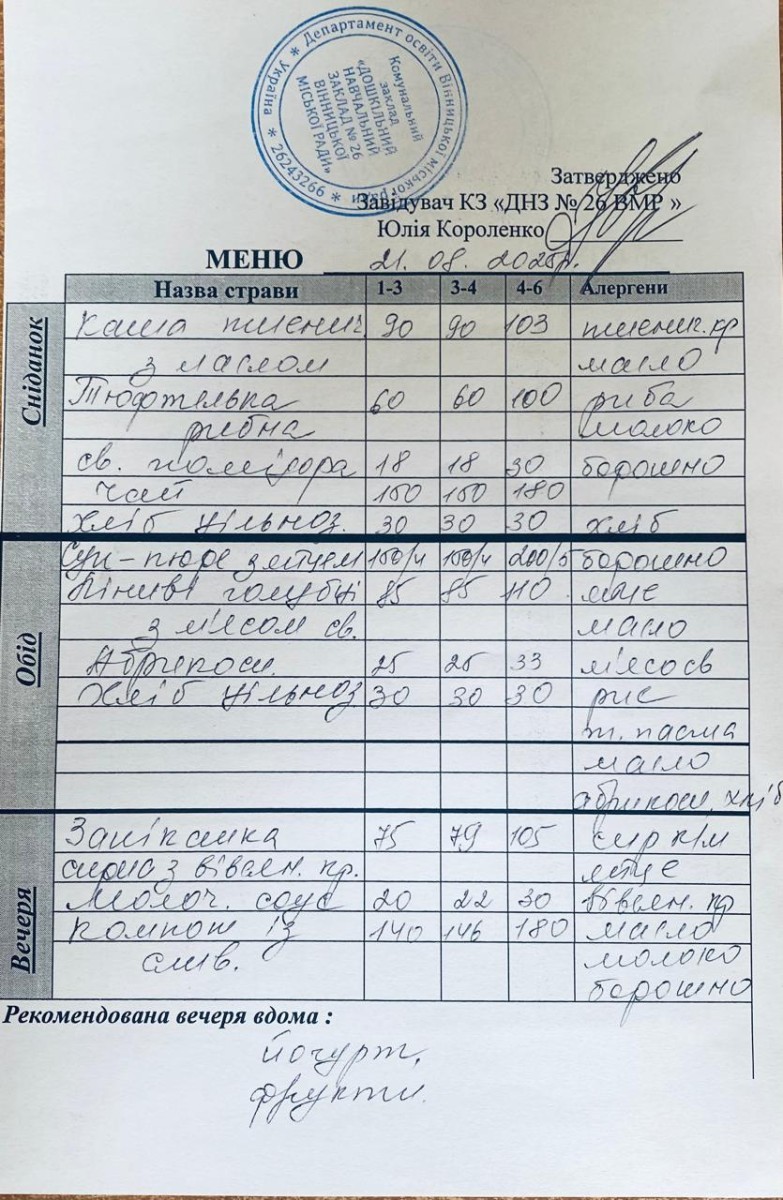 * Департамент освіти Вінницької міської ради * 26243266 * Україна
Комунальний
заклад
«ДОШКІЛЬНИЙ
НАВЧАЛЬНИЙ
ЗАКЛАД № 26
ВІННИЦЬКОЇ
МІСЬКОЇ РАДИ»
Затверджено
Завідувач КЗ «ДНЗ № 26 ВМР »
Юлія Короленко
МЕНЮ 21. 08. 2025р.
Назва страви 1-3 3-4 4-6 Алергени
Сніданок
Каша пшенич. 90 90 103 пшенич. кр
з маслом масло
Тюфтелька 60 60 100 риба
рибна молоко
св. помідора 18 18 30 борошно
чай 150 150 180
хліб цільноз. 30 30 30 хліб
Обід
Суп-пюре з яйцем 150/4 150/4 200/5 борошно
Ліниві голубці 85 85 110 яйце
з м'ясом св. масло
Абрикоси. 25 25 33 м'ясо св
Хліб цільноз 30 30 30 рис
т. паста
масло
абрикоси, хліб
Вечеря
Запіканка 75 79 105 сир к/м
сирна з вівсян. кр. яйце
молоч. соус 20 22 30 вівсян. кр
компот із 140 146 180 масло
слив. молоко
борошно
Рекомендована вечеря вдома :
йогурт,
фрукти.